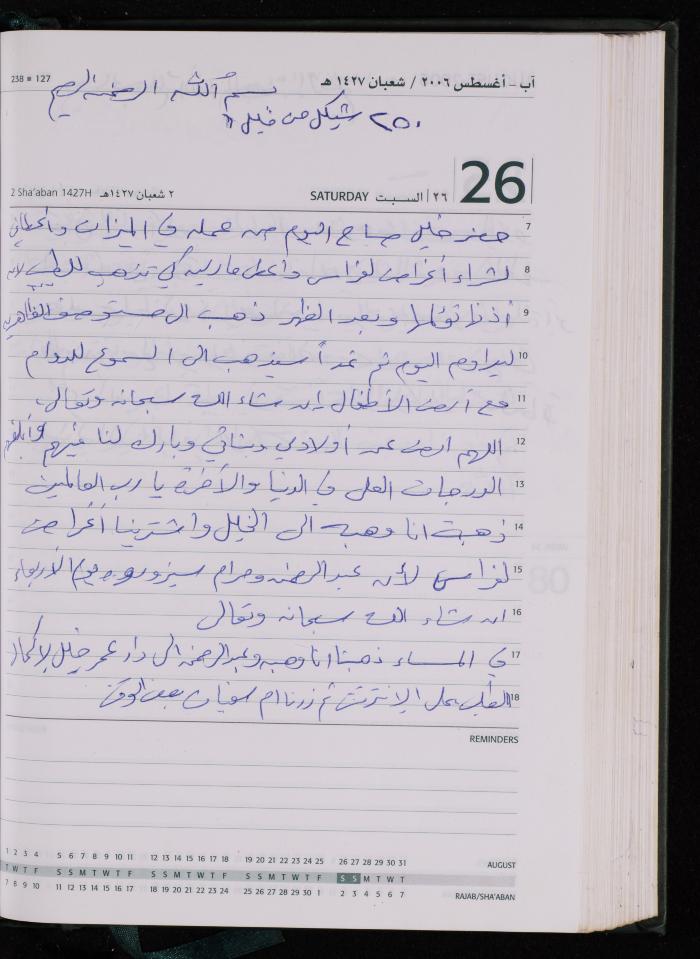 238 ■ 127
آب - أغسطس ٢٠٠٦ / شعبان ١٤٢٧ هـ
بسم الله الرحمن الرحيم
٢٥٠ شيكل من خليل
2 Sha'aban 1427H ٢ شعبان ١٤٢٧هـ SATURDAY ٢٦ السبت 26
7 حضر خليل صباح اليوم من عمله في الميزان وأعطاني
8 لشراء أغراض لفراس وأعطى مارية كي تذهب للطبيب لأن
9 أذنها تؤلمها وبعد الظهر ذهب الى مستوصف
10 ليداوم اليوم ثم غداً سيذهب الى السموع للدوام
11 مع أرض الأطفال إن شاء الله سبحانه وتعالى
12 اللهم ارض عن أولادي وبناتي وبارك لنا فيهم
13 الدرجات العلى في الدنيا والآخرة يا رب العالمين
14 ذهبت انا وهبه الى الخليل واشترينا أغراض
15 لفراس لأن عبد الرحمن ومرام سيزورونه يوم الأربعاء
16 ان شاء الله سبحانه وتعالى
17 في المساء ذهبنا انا وهبه وعبد الرحمن الى دار عمر خليل لإكمال
18 الإنترنت ثم زرنا ام سفيان بعض الوقت
REMINDERS
1 2 3 4 5 6 7 8 9 10 11 12 13 14 15 16 17 18 19 20 21 22 23 24 25 26 27 28 29 30 31 AUGUST
T W T F S S M T W T F S S M T W T F S S M T W T F S S M T W T
7 8 9 10 11 12 13 14 15 16 17 18 19 20 21 22 23 24 25 26 27 28 29 30 1 2 3 4 5 6 7 RAJAB/SHA'ABAN